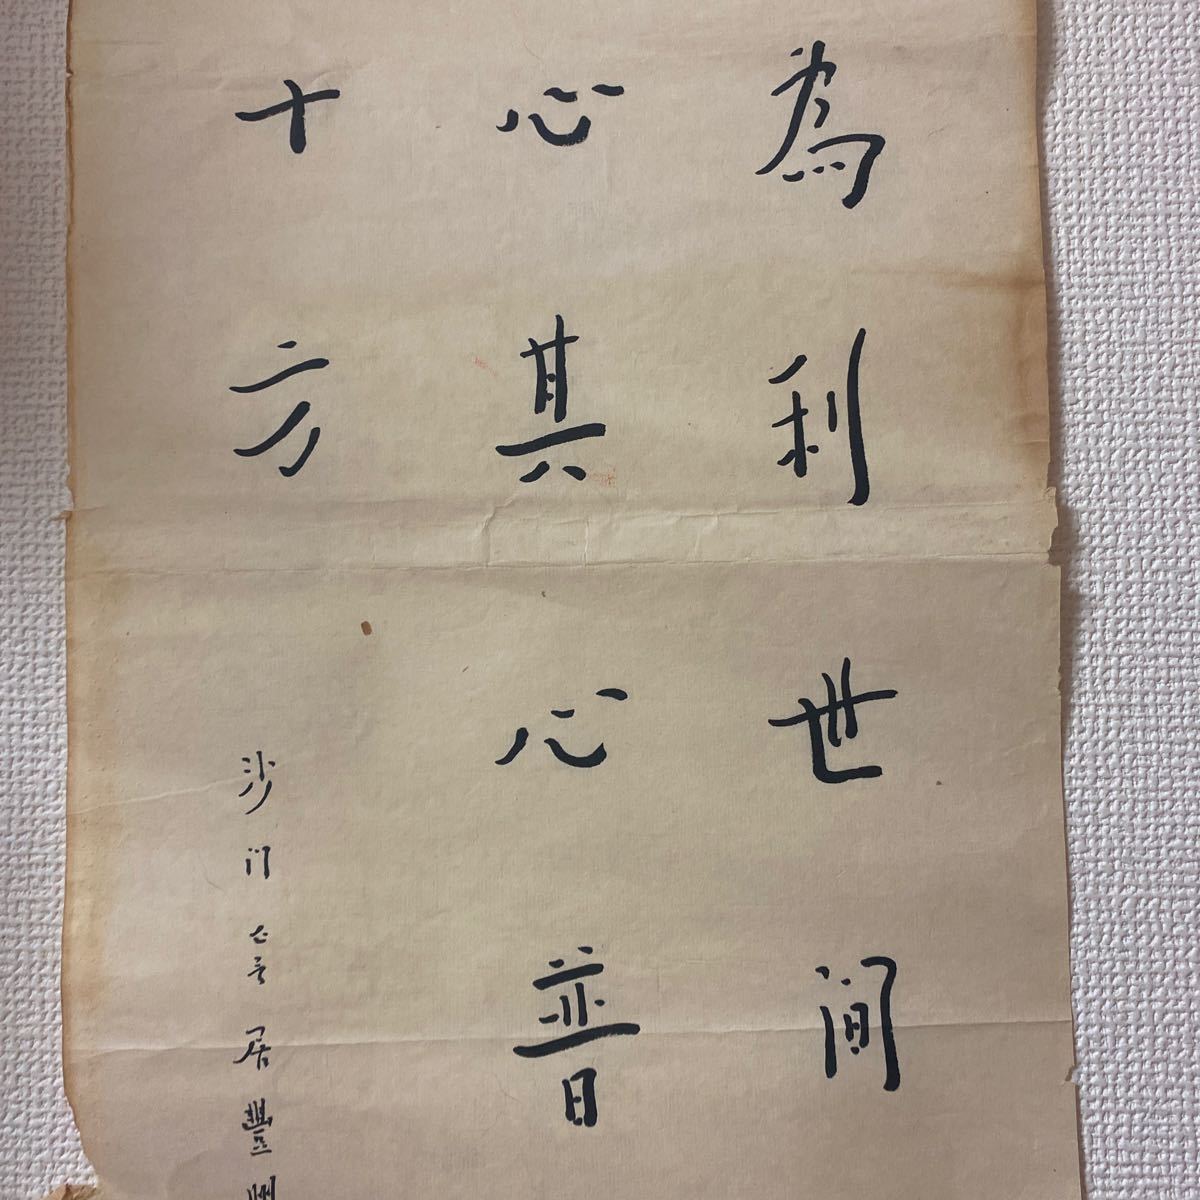 為利世間
心其心普
十方
沙门一音居豐州